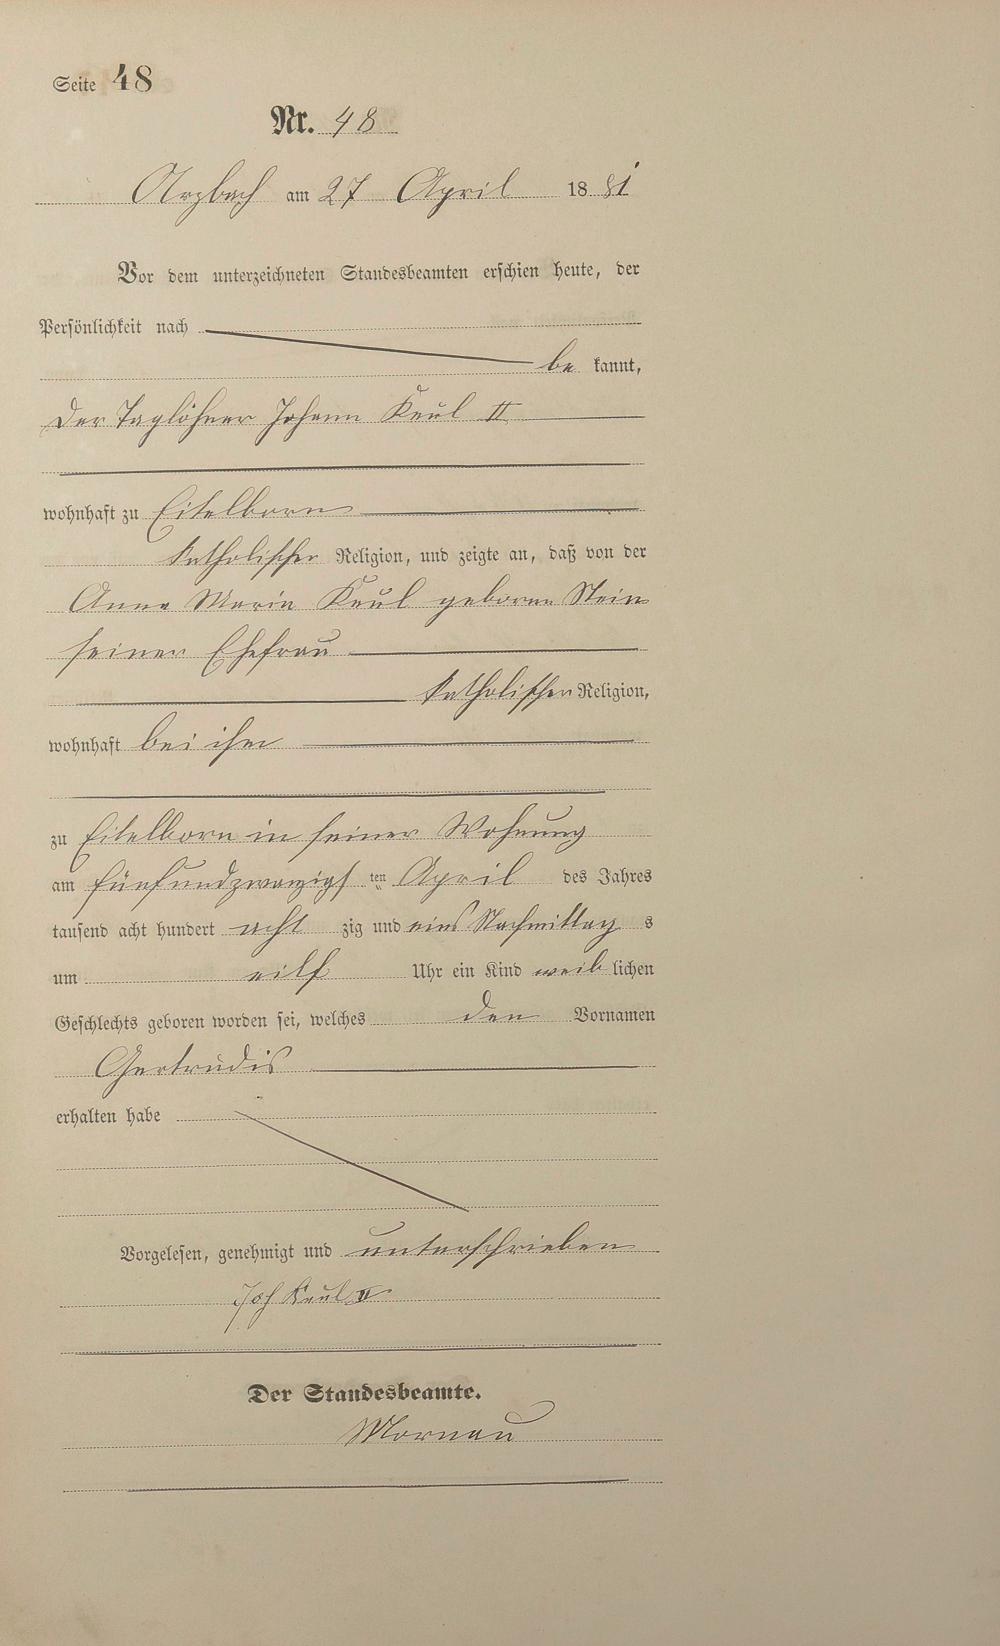 Seite 48
Nr. 48
Arzbach am 27 April 1881
Vor dem unterzeichneten Standesbeamten erschien heute, der
Persönlichkeit nach
be kannt,
der Taglöhner Johann Keul II
wohnhaft zu Eitelborn
katholischer Religion, und zeigte an, daß von der
Anna Maria Keul geborene Stein
seiner Ehefrau
katholischer Religion,
wohnhaft bei ihm
zu Eitelborn in seiner Wohnung
am fünfundzwanzigsten April des Jahres
tausend acht hundert acht zig und eins Nachmittags
um eilf Uhr ein Kind weiblichen
Geschlechts geboren worden sei, welches den Vornamen
Gertrudis
erhalten habe
Vorgelesen, genehmigt und unterschrieben
Joh Keul II
Der Standesbeamte.
Mornau